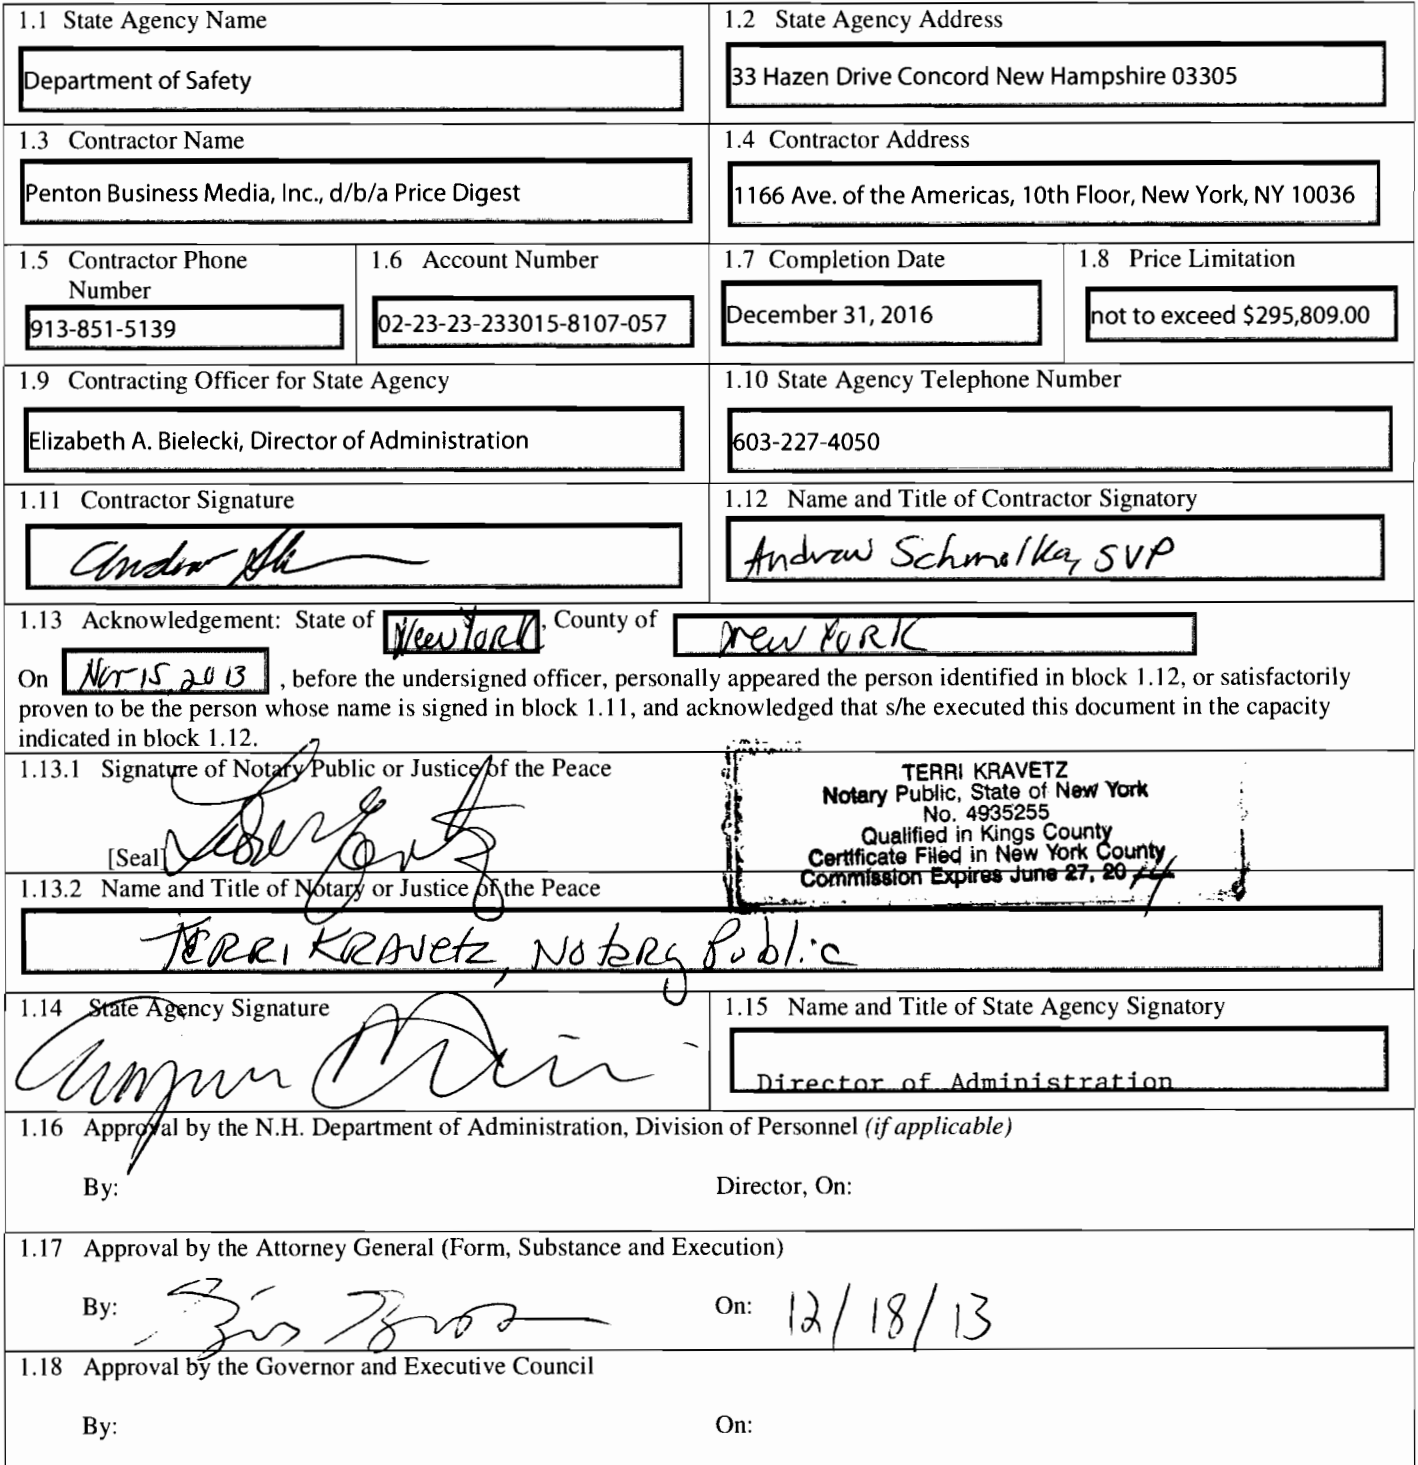 1.1 State Agency Name
Department of Safety
1.2 State Agency Address
33 Hazen Drive Concord New Hampshire 03305
1.3 Contractor Name
Penton Business Media, Inc., d/b/a Price Digest
1.4 Contractor Address
1166 Ave. of the Americas, 10th Floor, New York, NY 10036
1.5 Contractor Phone
Number
913-851-5139
1.6 Account Number
02-23-23-233015-8107-057
1.7 Completion Date
December 31, 2016
1.8 Price Limitation
not to exceed $295,809.00
1.9 Contracting Officer for State Agency
Elizabeth A. Bielecki, Director of Administration
1.10 State Agency Telephone Number
603-227-4050
1.11 Contractor Signature
1.12 Name and Title of Contractor Signatory
Andrew Schmolka, SVP
1.13 Acknowledgement: State of New York, County of New York
On Nov 15, 2013, before the undersigned officer, personally appeared the person identified in block 1.12, or satisfactorily
proven to be the person whose name is signed in block 1.11, and acknowledged that s/he executed this document in the capacity
indicated in block 1.12.
1.13.1 Signature of Notary Public or Justice of the Peace
[Seal]
TERRI KRAVETZ
Notary Public, State of New York
No. 4935255
Qualified in Kings County
Certificate Filed in New York County
Commission Expires June 27, 2014
1.13.2 Name and Title of Notary or Justice of the Peace
TERRI KRAVETZ, NOTARY Public
1.14 State Agency Signature
1.15 Name and Title of State Agency Signatory
Director of Administration
1.16 Approval by the N.H. Department of Administration, Division of Personnel (if applicable)
By:
Director, On:
1.17 Approval by the Attorney General (Form, Substance and Execution)
By:
On: 12/18/13
1.18 Approval by the Governor and Executive Council
By:
On: